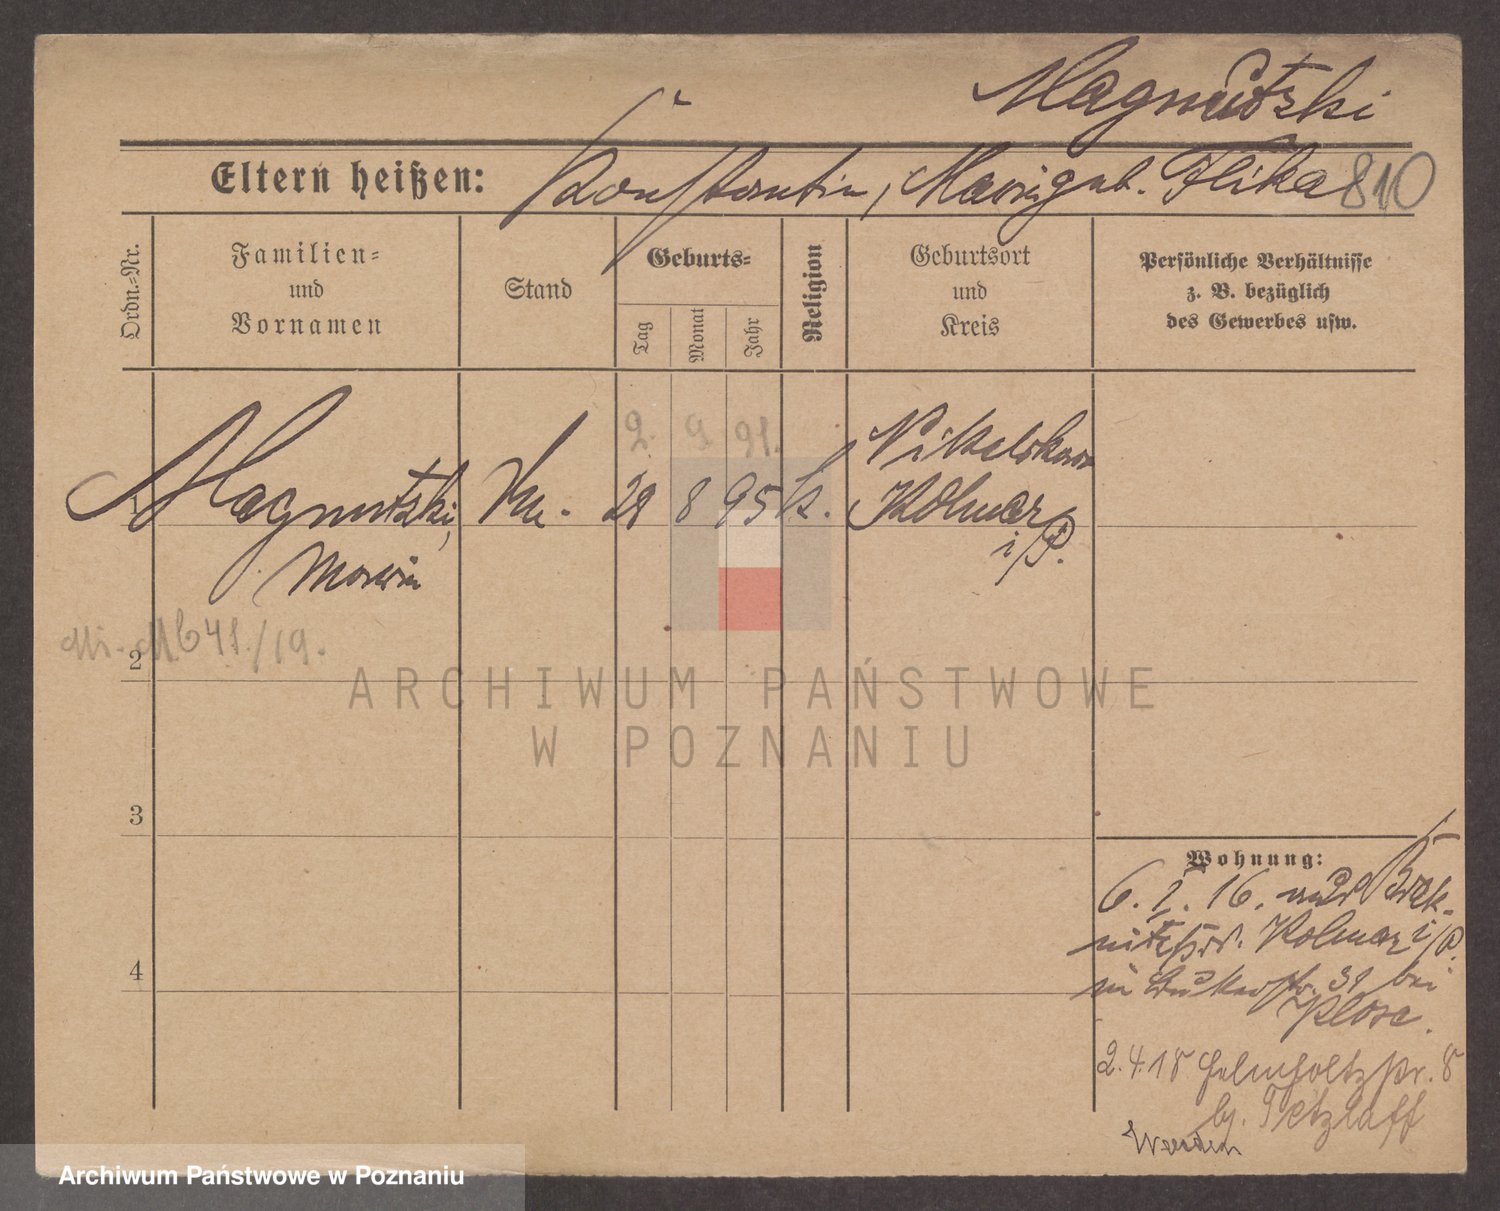 Magnutzki
Eltern heißen: Konstantin, Marie geb. Flika 810
Ordn.-Nr.
Familien-
und
Vornamen
Stand
Geburts-
Tag
Monat
Jahr
Religion
Geburtsort
und
Kreis
Persönliche Verhältnisse
z. B. bezüglich
des Gewerbes usw.
2. 9. 91.
1 Magnutzki, 28 8 95 k.
Kolmar
i/P.
M641/19.
2
ARCHIWUM PAŃSTWOWE
W POZNANIU
3
4
Wohnung:
6. I. 16.
Kolmar i/P.
31 bei
Klose.
2.4.18 Helmholtzstr. 8
bj. Petzlaff
Archiwum Państwowe w Poznaniu